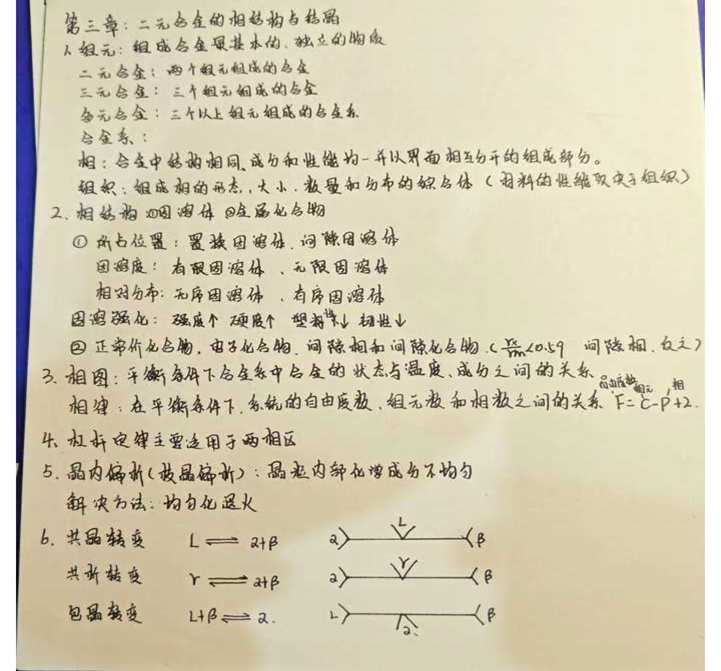 第三章：二元合金的相结构与结晶
1、组元：组成合金最基本的、独立的物质
二元合金：两个组元组成的合金
三元合金：三个组元组成的合金
多元合金：三个以上组元组成的合金系
合金系：
相：合金中结构相同、成分和性能均一并以界面相互分开的组成部分。
组织：组成相的形态、大小、数量和分布的综合体（材料的性能取决于组织）
2、相结构 ①固溶体 ②金属化合物
① 所占位置：置换固溶体、间隙固溶体
固溶度：有限固溶体、无限固溶体
相对分布：无序固溶体、有序固溶体
固溶强化：强度↑ 硬度↑ 塑性↓ 韧性↓
② 正常价化合物，电子化合物，间隙相和间隙化合物（rx/rm<0.59 间隙相，反之）
3、相图：平衡条件下合金系中合金的状态与温度、成分之间的关系
自由度数 组元 相
相律：在平衡条件下，系统的自由度数、组元数和相数之间的关系 F=C-P+2.
4、杠杆定律主要适用于两相区
5、晶内偏析（枝晶偏析）：晶粒内部化学成分不均匀
解决方法：均匀化退火
6、共晶转变 L⇌α+β α L β
共析转变 γ⇌α+β α γ β
包晶转变 L+β⇌α. L α. β